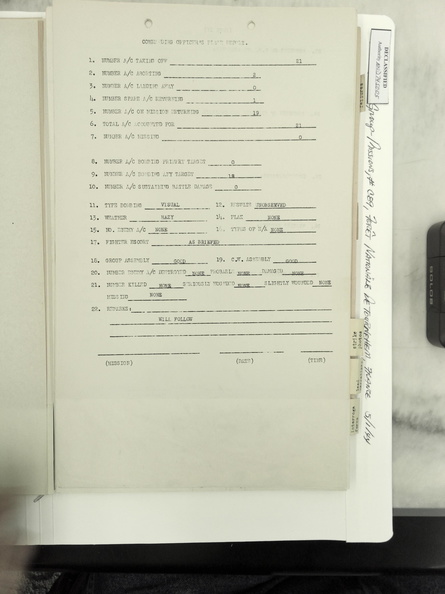 COMMANDING OFFICERS FLASH REPORT.
1. NUMBER A/C TAKING OFF 21
2. NUMBER A/C ABORTING 2
3. NUMBER A/C LANDING AWAY 0
4. NUMBER SPARE A/C RETURNING 1
5. NUMBER A/C ON MISSION RETURNING 19
6. TOTAL A/C ACCOUNTED FOR 21
7. NUMBER A/C MISSING 0
8. NUMBER A/C BOMBING PRIMARY TARGET 0
9. NUMBER A/C BOMBING ALT TARGET 18
10. NUMBER A/C SUSTAINING BATTLE DAMAGE 0
11. TYPE BOMBING VISUAL 12. RESULTS UNOBSERVED
13. WEATHER HAZY 14. FLAK NONE
15. NO. ENEMY A/C NONE 16. TYPES OF E/A NONE
17. FIGHTER ESCORT AS BRIEFED
18. GROUP ASSEMBLY GOOD 19. C.W. ASSEMBLY GOOD
20. NUMBER ENEMY A/C DESTROYED NONE PROBABLE NONE DAMAGED NONE
21. NUMBER KILLED NONE SERIOUSLY WOUNDED NONE SLIGHTLY WOUNDED NONE
MISSING NONE
22. REMARKS:
WILL FOLLOW
(MISSION) (DATE) (TIME)
DECLASSIFIED